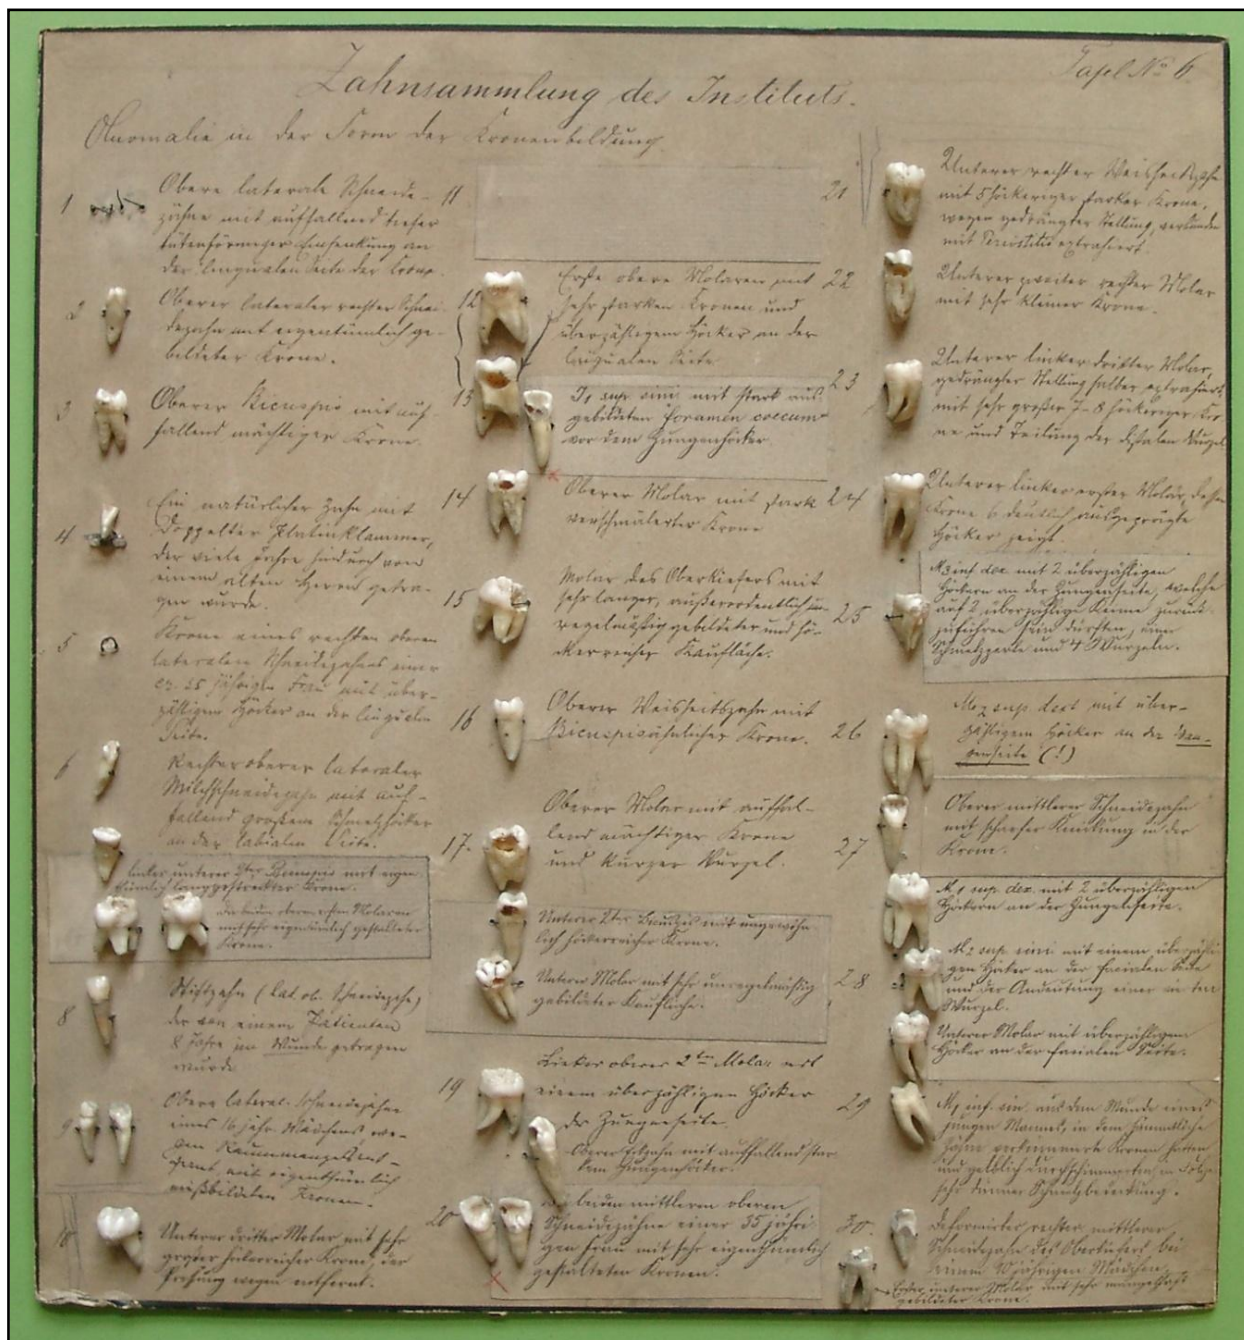 Tafel No 6.
Zahnsammlung des Instituts.
Anomalie in der Form der Kronenbildung.
1
Obere laterale Schneide-
zähne mit auffallend tiefer
tütenförmiger Einsenkung an
der lingualen Seite der Krone.
2
Oberer lateraler rechter Schnei-
dezahn mit eigentümlich ge-
bildeter Krone.
3
Oberer Bicuspis mit auf-
fallend mächtiger Krone.
4
Ein natürlicher Zahn mit
doppelter Platinklammer,
der viele Jahre hindurch von
einem alten Herrn getra-
gen wurde.
5
Krone eines rechten oberen
lateralen Schneidezahns einer
jährigen Frau mit über-
zähligem Höcker an der lingualen
Seite.
6
Rechter oberer lateraler
Milchschneidezahn mit auf-
fallend großem Schmelzhöcker
an der labialen Seite.
Linker unterer 2ter Bicuspis mit eigen-
tümlich langgestreckter Krone.
Die beiden oberen ersten Molaren
mit sehr eigentümlich gestalteter
Krone.
8
Stiftzahn (lat. ob. Schneidezahn)
der von einem Patienten
8 Jahre im Munde getragen
wurde.
9
Obere lateral. Schneidezähne
eines 16 jähr. Mädchens we-
gen Raummangel ent-
fernt, mit eigenthümlich
mißbildeten Kronen.
10
Unterer dritter Molar mit sehr
großer Krone, der
wegen entfernt.
11
12
Erste obere Molaren mit
sehr starken Kronen und
überzähligem Höcker an der
lingualen Seite
13
I1 sup. sini. mit stark aus-
gebildeten foramen coecum
vor dem Zungenhöcker.
14
Oberer Molar mit stark
verschmälerter Krone
15
Molar des Oberkiefers mit
sehr langer, außerordentlich un-
regelmäßig gebildeter und hö-
ckerreicher Kaufläche.
16
Oberer Weisheitszahn mit
Bicuspisähnlicher Krone.
17.
Oberer Molar mit auffal-
lend mächtiger Krone
und kurzer Wurzel.
Unterer 2ter Bicuspis mit ungewöhn-
lich höckerreicher Krone.
Unterer Molar mit sehr unregelmäßig
gebildeter Kaufläche.
19
Linker oberer 2ter Molar mit
einem überzähligen Höcker
der Zungenseite.
Oberer Eckzahn mit auffallend star-
kem Zungenhöcker.
20
Die beiden mittleren oberen
Schneidezähne einer 35 jähri-
gen Frau mit sehr eigenthümlich
gestalteten Kronen.
21
Unterer rechter Weisheitszahn
mit 5 höckeriger starker Krone,
wegen gedrängter Stellung, verbunden
mit Periostitis extrahiert.
22
Unterer zweiter rechter Molar
mit sehr kleiner Krone.
23
Unterer linker dritter Molar,
gedrängter Stellung halber extrahiert,
mit sehr großer 7-8 höckeriger Kro-
ne und Teilung der distalen Wurzel
24
Unterer linker erster Molar, dessen
Krone 6 deutlich ausgeprägte
Höcker zeigt.
25
M3 inf. dex. mit 2 überzähligen
Höckern an der Zungenseite, welche
auf 2 überzählige Keime zurück-
zuführen sein dürften, einer
Schmelzperle und 4 Wurzeln.
26
M2 sup. dext mit über-
zähligem Höcker an der Wan-
genseite (!)
27
Oberer mittlerer Schneidezahn
mit scharfer Knickung in der
Krone.
M1 sup. dex. mit 2 überzähligen
Höckern an der Zungenseite.
28
M2 sup. sini mit einem überzähli-
gen Höcker an der facialen Seite
und der Andeutung einer 4 ten
Wurzel.
Unterer Molar mit überzähligem
Höcker an der facialen Seite.
29
M1 inf. sin. aus dem Munde eines
jungen Mannes, in dem sämmtliche
Zähne verkümmerte Kronen hatten
und gelblich durchschimmerten in Folge
sehr dünner Schmelzbedeckung.
30.
Deformirter rechter mittlerer
Schneidezahn des Oberkiefers bei
einem 10 jährigen Mädchen.
Erster unterer Molar mit sehr mangelhaft
gebildeter Krone.